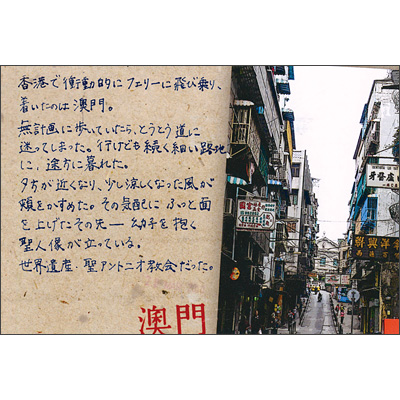 香港で衝動的にフェリーに飛び乗り、
着いたのは澳門。
無計画に歩いていたら、とうとう道に
迷ってしまった。行けども続く細い路地
に、途方に暮れた。
夕方が近くなり、少し涼しくなった風が
頬をかすめた。その気配にふっと面
を上げたその先――幼子を抱く
聖人像が立っている。
世界遺産・聖アントニオ教会だった。
澳門